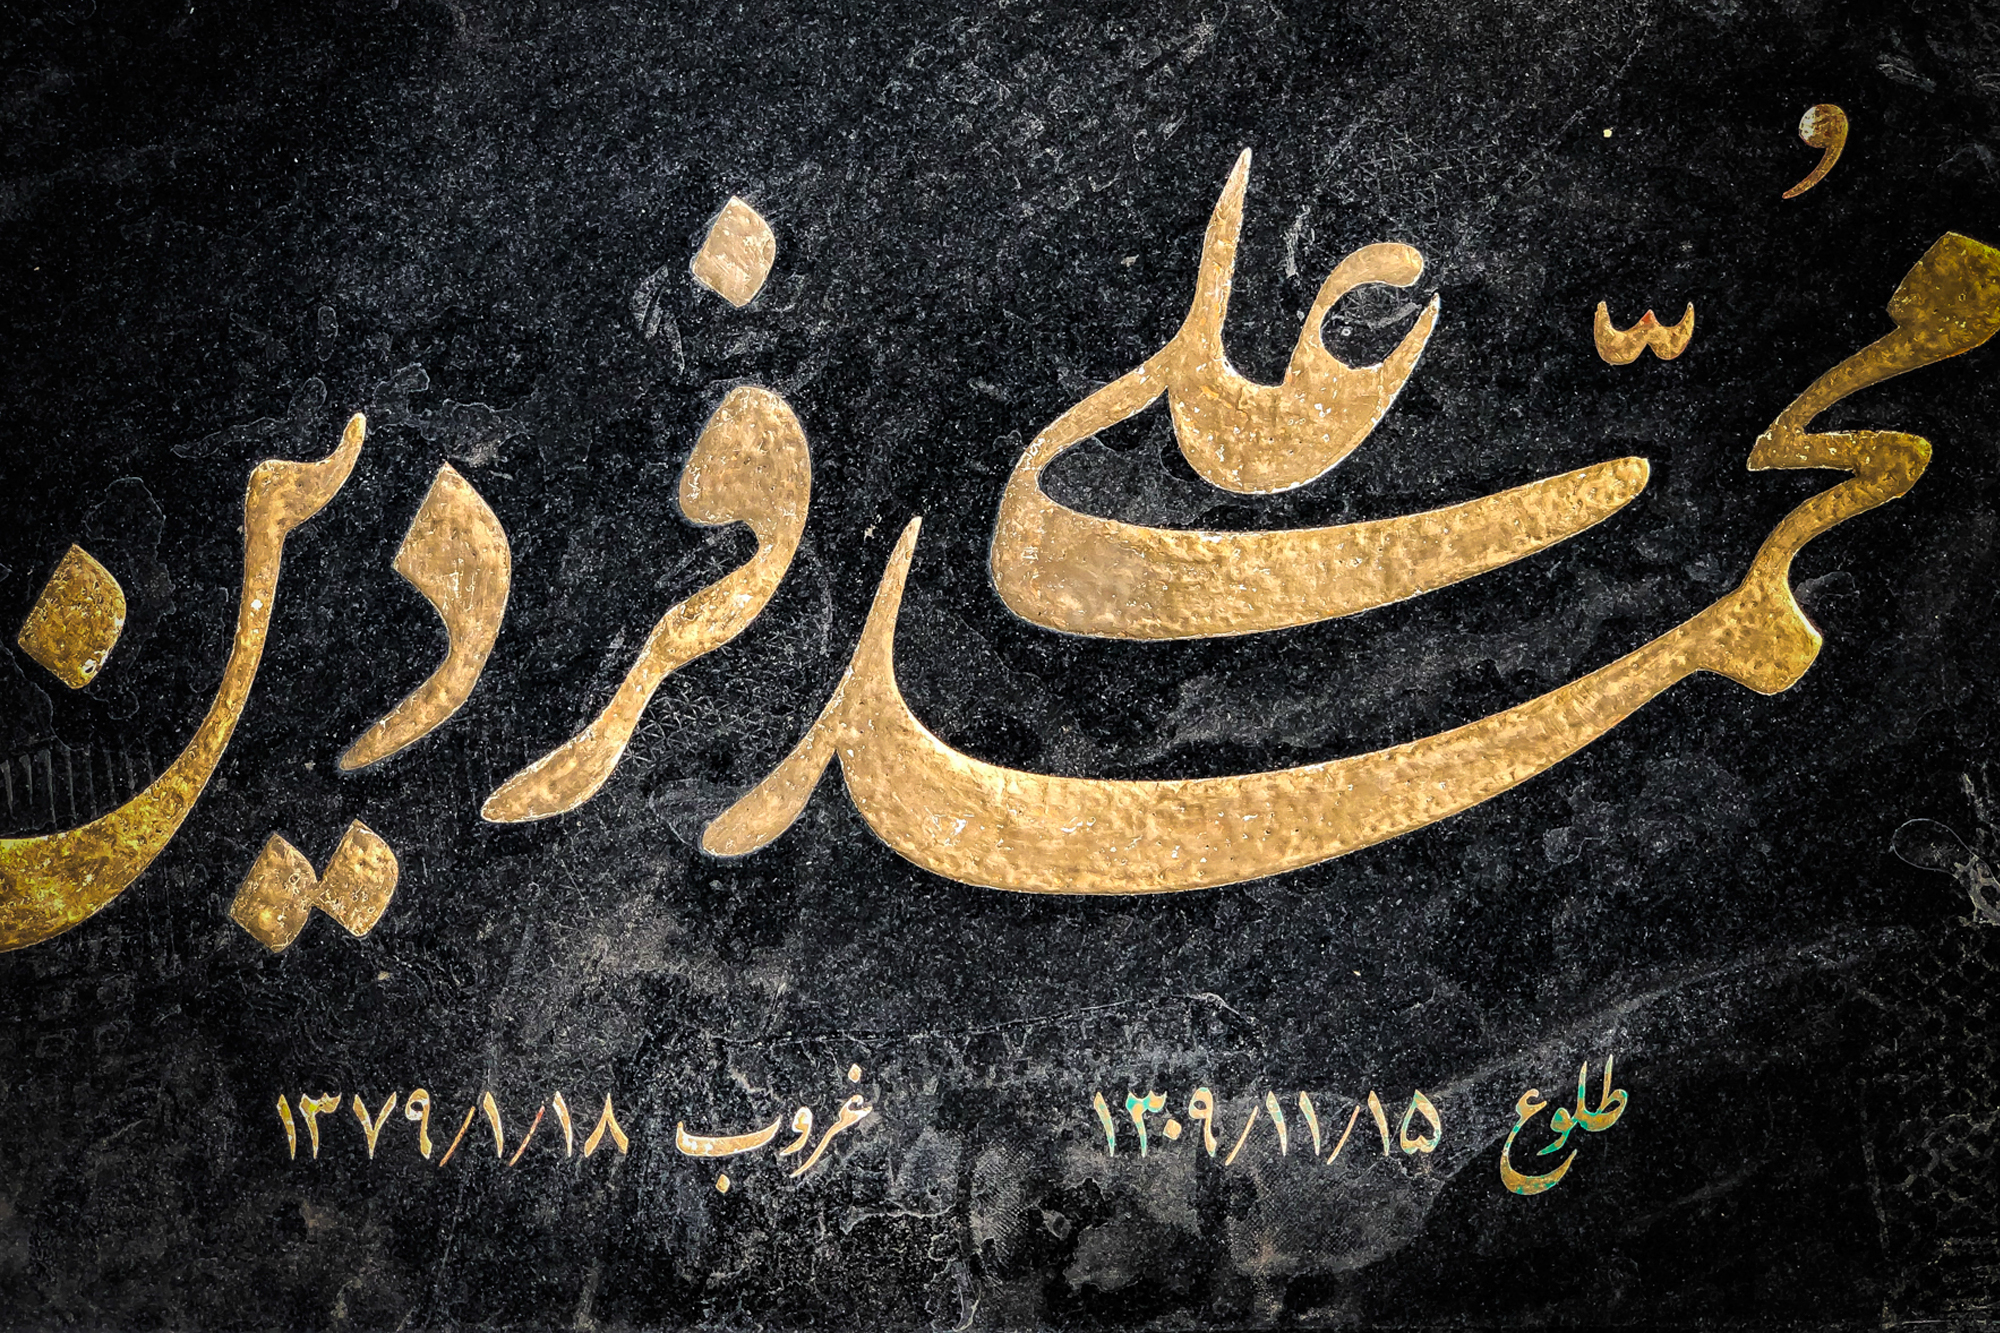 مُحمّد علی فردین
طلوع ۱۳۰۹/۱۱/۱۵ غروب ۱۳۷۹/۱/۱۸